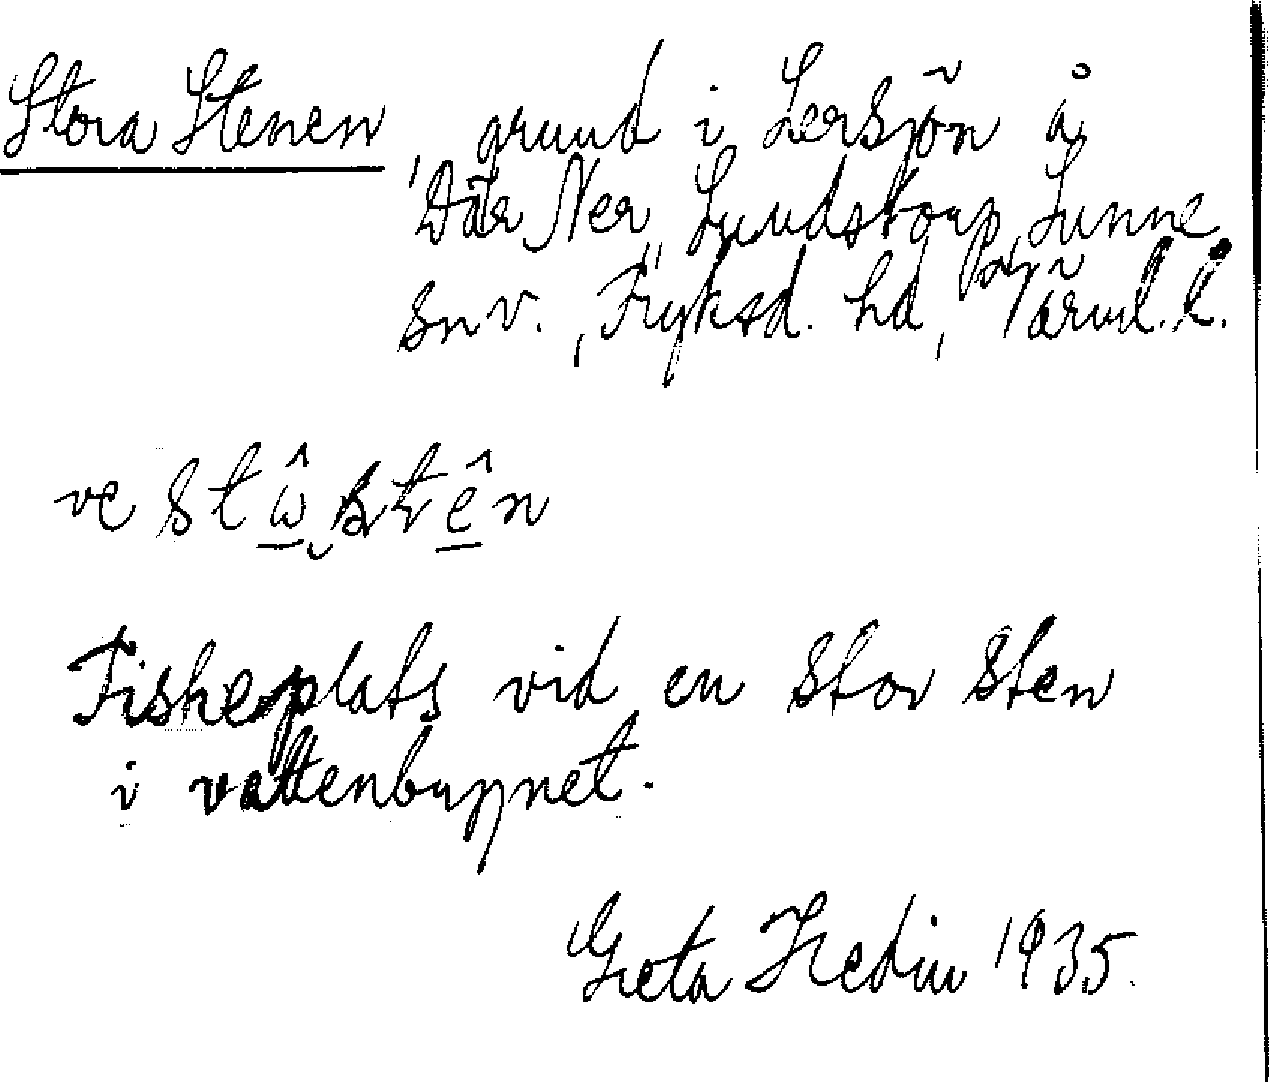 Stora Stenen grund i Lersjön å
Där Ner, Lundstorp, Sunne
snv., Fryksd. hd, Värml. l.
ve stω̂stê̱n
Fiskeplats vid en stor sten
i vattenbrynet.
Greta Hedin 1935.